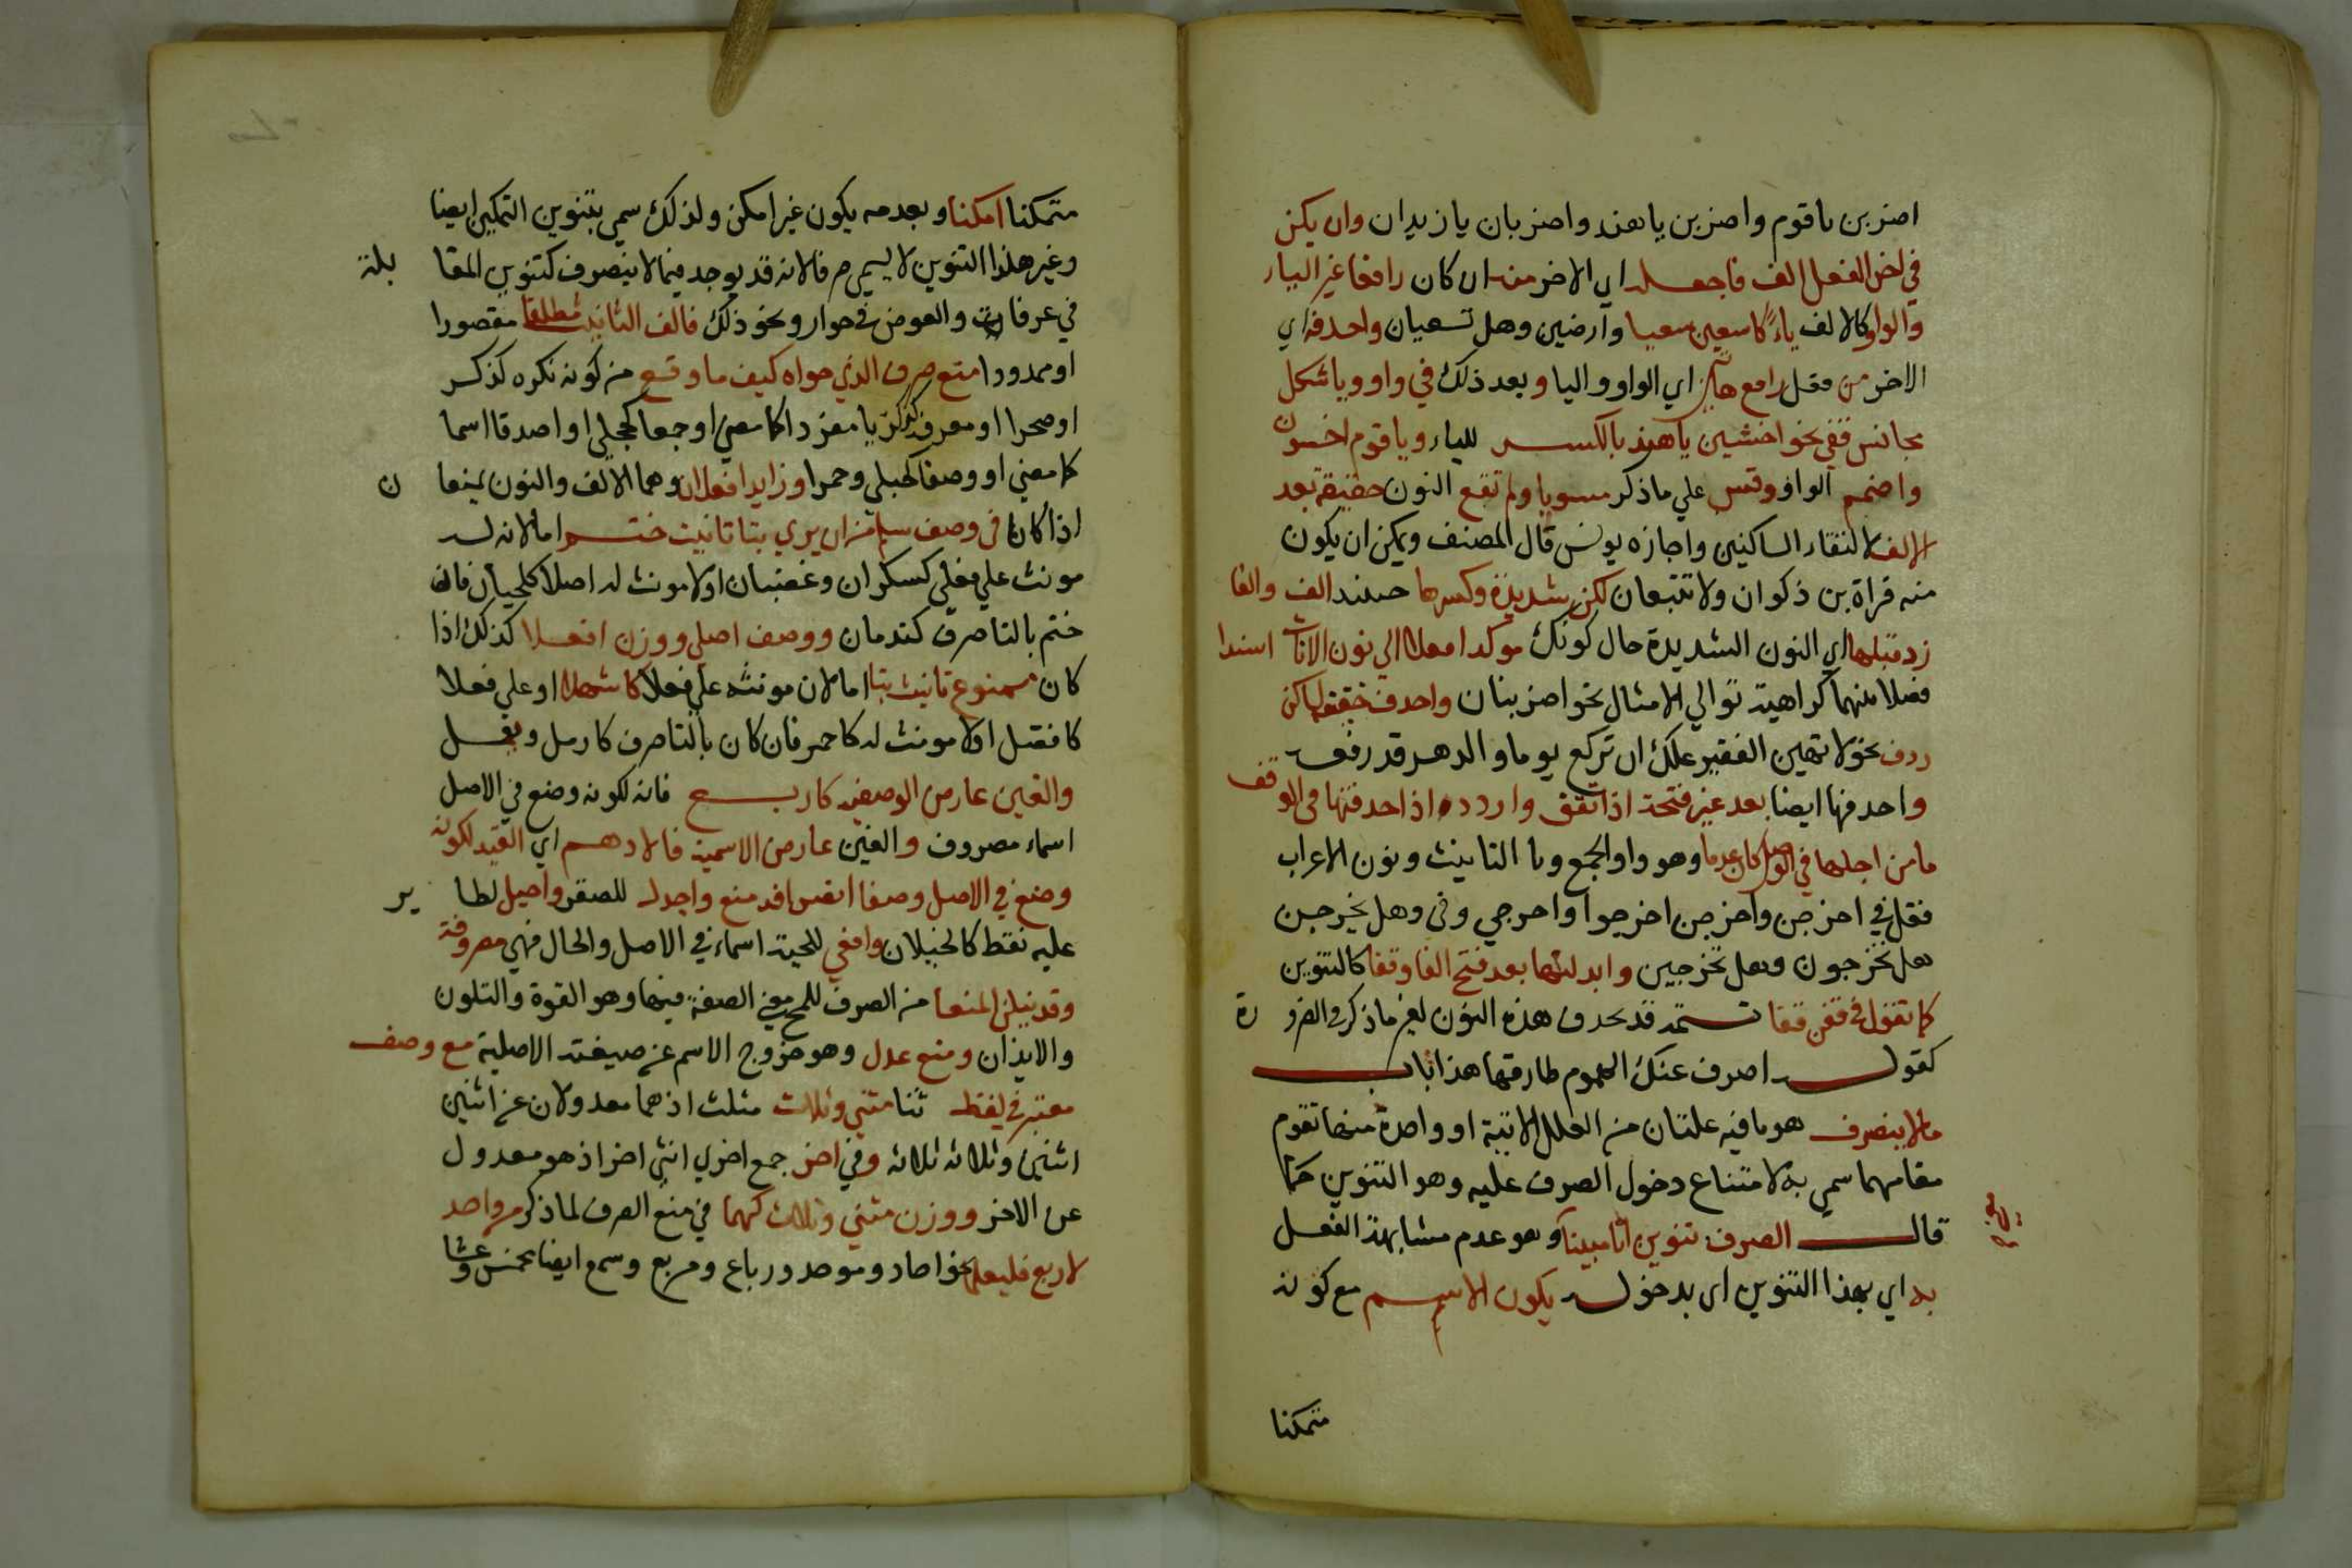 اضربن ياقوم واضربن ياهند واضربان يازيدان وان يكن
في اخر الفعل الف فاجعله اي الاخر منه ان كان رافعا غير اليار
والواو كالالف ياء كاسعين سعيا وارضين وهل تسعيان واحذفه اي
الاخر من فعل رافع هاتين اي الواو واليا وبعد ذلك في واو ويا شكل
مجانس قفي نحو اخشين ياهند بالكسر للياء وياقوم اخشون
واضمم الواو وقس علي ماذكر مسويا ولم تقع النون خفيفة بعد
الالف لالتقاء الساكنين واجازه يونس قال المصنف ويمكن ان يكون
منه قراة بن ذكوان ولا تتبعان لكن شديدة وكسرها حينئذ الف والفا
زد قبلها اي النون الشديدة حال كونك موكدا فعلا الي نون الاناث اسندا
فصلا بينهما كراهية توالي الامثال نحو اضربنان واحذف خفيفة لساكن
ردف نحو لا تهين الفقير علك ان تركع يوما والدهر قد رفعه
واحذفها ايضا بعد غير فتحة اذا تقف واردده اذا حذفتها في الوقف
مامن اجلها في الوصل كان عدما وهو واو الجمع ويا التانيث ونون الاعراب
فقل في اخرجن واخرجن اخرجوا واخرجي وفي وهل يخرجن
هل تخرجون وهل تخرجين وابدلنها بعد فتح الفا وقفا كالتنوين
كما تقول في قفن قفا تتمه قد تحذف هذه النون لغير ماذكر في الضرورة
كقوله اصرف عنك الهموم طارقها هذا باب
مالا ينصرف هو مافيه علتان من العلل الاتية او واحدة منها تقوم
مقامهما سمي به لامتناع دخول الصرف عليه وهو التنوين كما
قال الصرف تنوين اتا مبينا وهو عدم مشابهة الفعل
به اي بهذا التنوين اي بدخوله يكون الاسم مع كونه
متمكنا
متمكنا امكنا وبعدمه يكون غير امكن ولذلك سمي بتنوين التمكين ايضا
وغير هذا التنوين لا يسمي صرفا لانه قد يوجد فيما لا ينصرف كتنوين المقابلة
في عرفات والعوض في جوار ونحو ذلك فالف التانيث مطلقا مقصورا
او ممدودا منع صرف الذي حواه كيف ما وقع من كونه نكره كذكر
او صحرا او معرفة كزكريا مفردا كما مضي او جمعا كحجلي او اصدقا اسما
كما مضي او وصفا كحبلي وحمرا وزايدا فعلان وهما الالف والنون يمنعان
اذا كانا في وصف سلم من ان يري بتا تانيث ختم اما لانه له
مونث علي فعلي كسكران وغضبان او لا مونث له اصلا كلحيان فان
ختم بالتا صرف كندمان ووصف اصلي ووزن افعلا كذلك اذا
كان ممنوع تانيث بتا اما لان مونثه علي فعلا كاشهلا او علي فعلا
كافضل او لا مونث له كاحمر فان كان بالتا صرف كارمل ويعمل
والغين عارض الوصفيه كاربع فانه لكونه وضع في الاصل
اسماء مصروف والغين عارض الاسمية فالادهم اي القيد لكونه
وضع في الاصل وصفا انصرافه منع واجدل للصقر واخيل لطاير
عليه نقط كالخيلان وافعي للحية اسماء في الاصل والحال فهي مصروفة
وقد ينلن المنعا من الصرف للمح معني الصفة فيها وهو القوة والتلون
والايذان ومنع عدل وهو خروج الاسم عن صيغته الاصلية مع وصف
معتبر في لفظ ثنا مثني وثلاث مثلث اذ هما معدولان عن اثنين
اثنين وثلاثه ثلاثه وفي اخر جمع اخري انثي اخر اذ هو معدول
عن الاخر ووزن مثني وثلاث كهما في منع الصرف لما ذكر من واحد
لاربع فليعلما نحو احاد وموحد ورباع ومربع وسمع ايضا مخمس وعشا